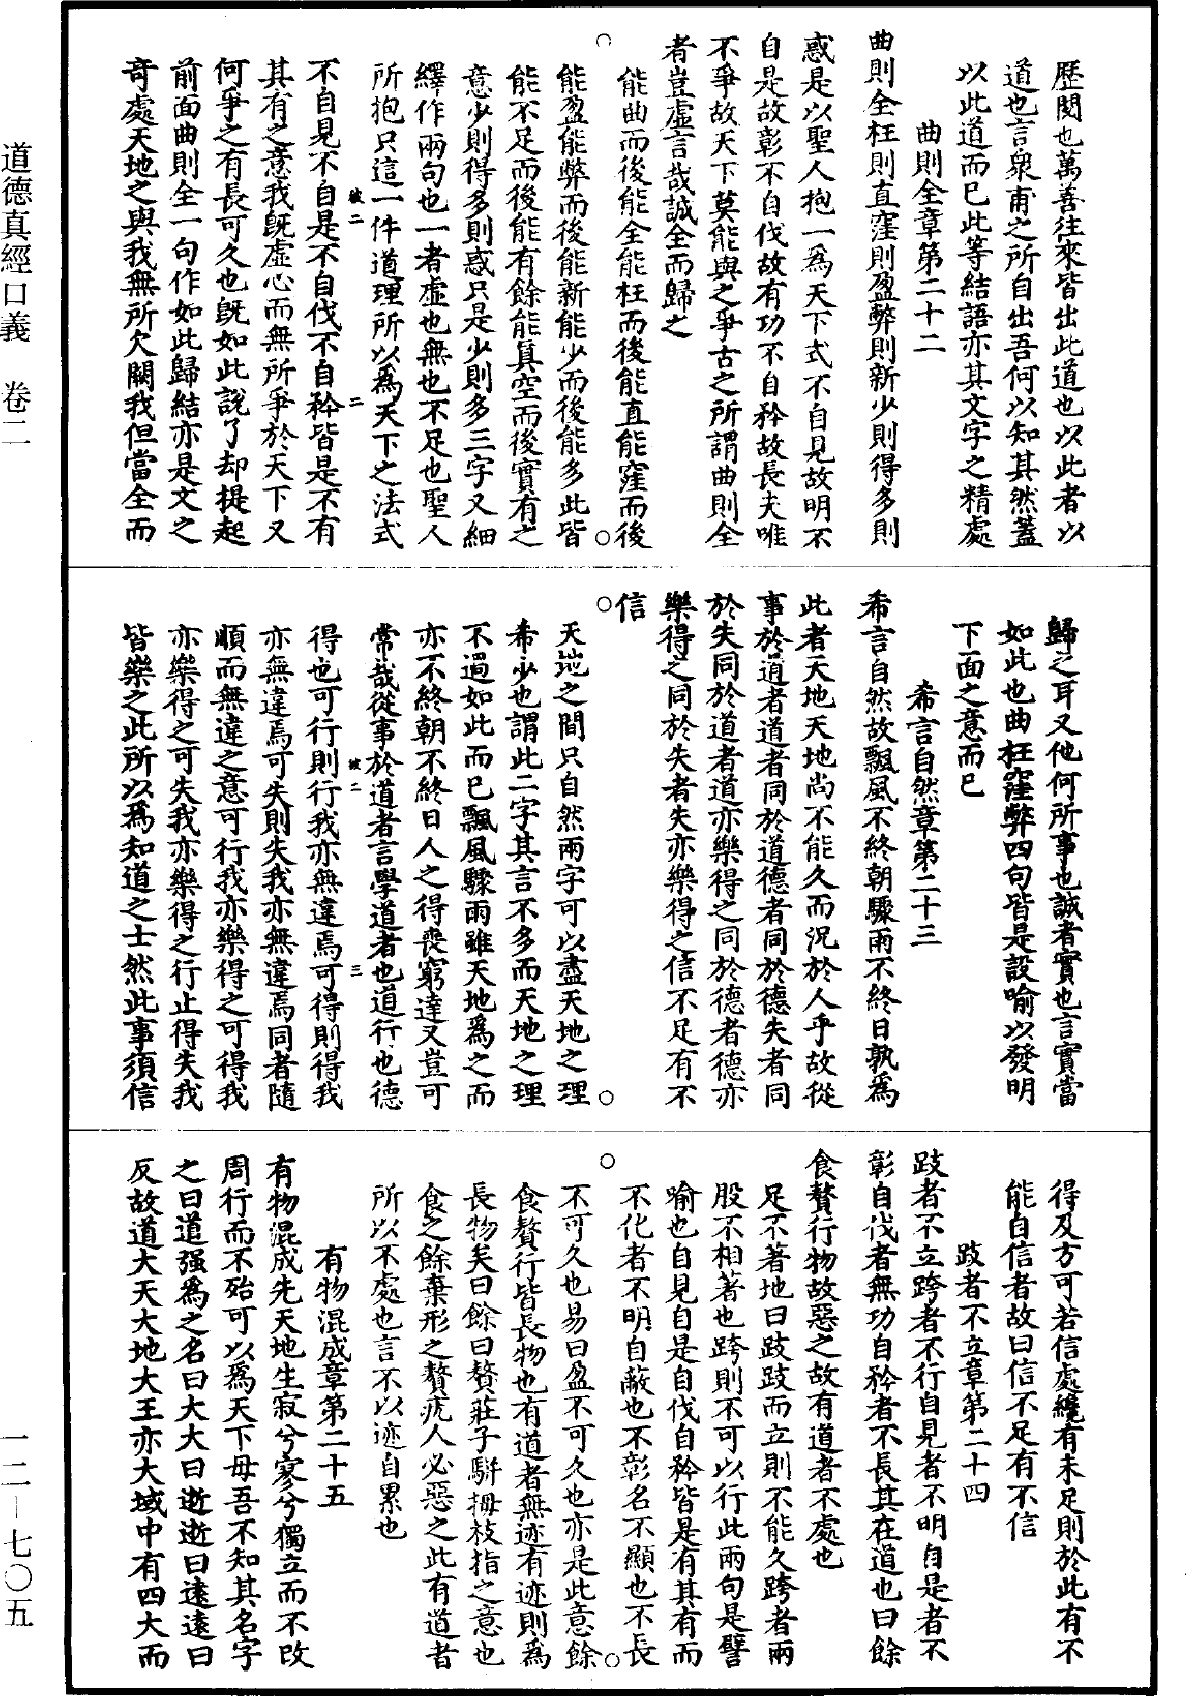 歷閱也萬善往來皆出此道也以此者以
道也言衆甫之所自出吾何以知其然蓋
以此道而已此等結語亦其文字之精處
曲則全章第二十二
曲則全枉則直窪則盈弊則新少則得多則
惑是以聖人抱一爲天下式不自見故明不
自是故彰不自伐故有功不自矜故長夫唯
不爭故天下莫能與之爭古之所謂曲則全
者豈虛言哉誠全而歸之
能曲而後能全能枉而後能直能窪而後
能盈能弊而後能新能少而後能多此皆
能不足而後能有餘能眞空而後實有之
意少則得多則惑只是少則多三字又細
繹作兩句也一者虛也無也不足也聖人
所抱只這一件道理所以爲天下之法式
不自見不自是不自伐不自矜皆是不有
其有之意我旣虛心而無所爭於天下又
何爭之有長可久也旣如此說了却提起
前面曲則全一句作如此歸結亦是文之
奇處天地之與我無所欠闕我但當全而
歸之耳又他何所事也誠者實也言實當
如此也曲枉窪弊四句皆是設喻以發明
下面之意而已
希言自然章第二十三
希言自然故飄風不終朝驟雨不終日孰爲
此者天地天地尚不能久而況於人乎故從
事於道者道者同於道德者同於德失者同
於失同於道者道亦樂得之同於德者德亦
樂得之同於失者失亦樂得之信不足有不
信
天地之間只自然兩字可以盡天地之理
希少也謂此二字其言不多而天地之理
不過如此而已飄風驟雨雖天地爲之而
亦不終朝不終日人之得喪窮達又豈可
常哉從事於道者言學道者也道行也德
得也可行則行我亦無違焉可得則得我
亦無違焉可失則失我亦無違焉同者隨
順而無違之意可行我亦樂得之可得我
亦樂得之可失我亦樂得之行止得失我
皆樂之此所以爲知道之士然此事須信
得及方可若信處纔有未足則於此有不
能自信者故曰信不足有不信
跂者不立章第二十四
跂者不立跨者不行自見者不明自是者不
彰自伐者無功自矜者不長其在道也曰餘
食贅行物故惡之故有道者不處也
足不著地曰跂跂而立則不能久跨者兩
股不相著也跨則不可以行此兩句是譬
喻也自見自是自伐自矜皆是有其有而
不化者不明自蔽也不彰名不顯也不長
不可久也易曰盈不可久也亦是此意餘
食贅行皆長物也有道者無迹有迹則爲
長物矣曰餘曰贅莊子駢拇枝指之意也
食之餘棄形之贅疣人必惡之此有道者
所以不處也言不以迹自累也
有物混成章第二十五
有物混成先天地生寂兮寥兮獨立而不改
周行而不殆可以爲天下母吾不知其名字
之曰道强爲之名曰大大曰逝逝曰遠遠曰
反故道大天大地大王亦大域中有四大而
道德真經口義　卷二
一二－七〇五